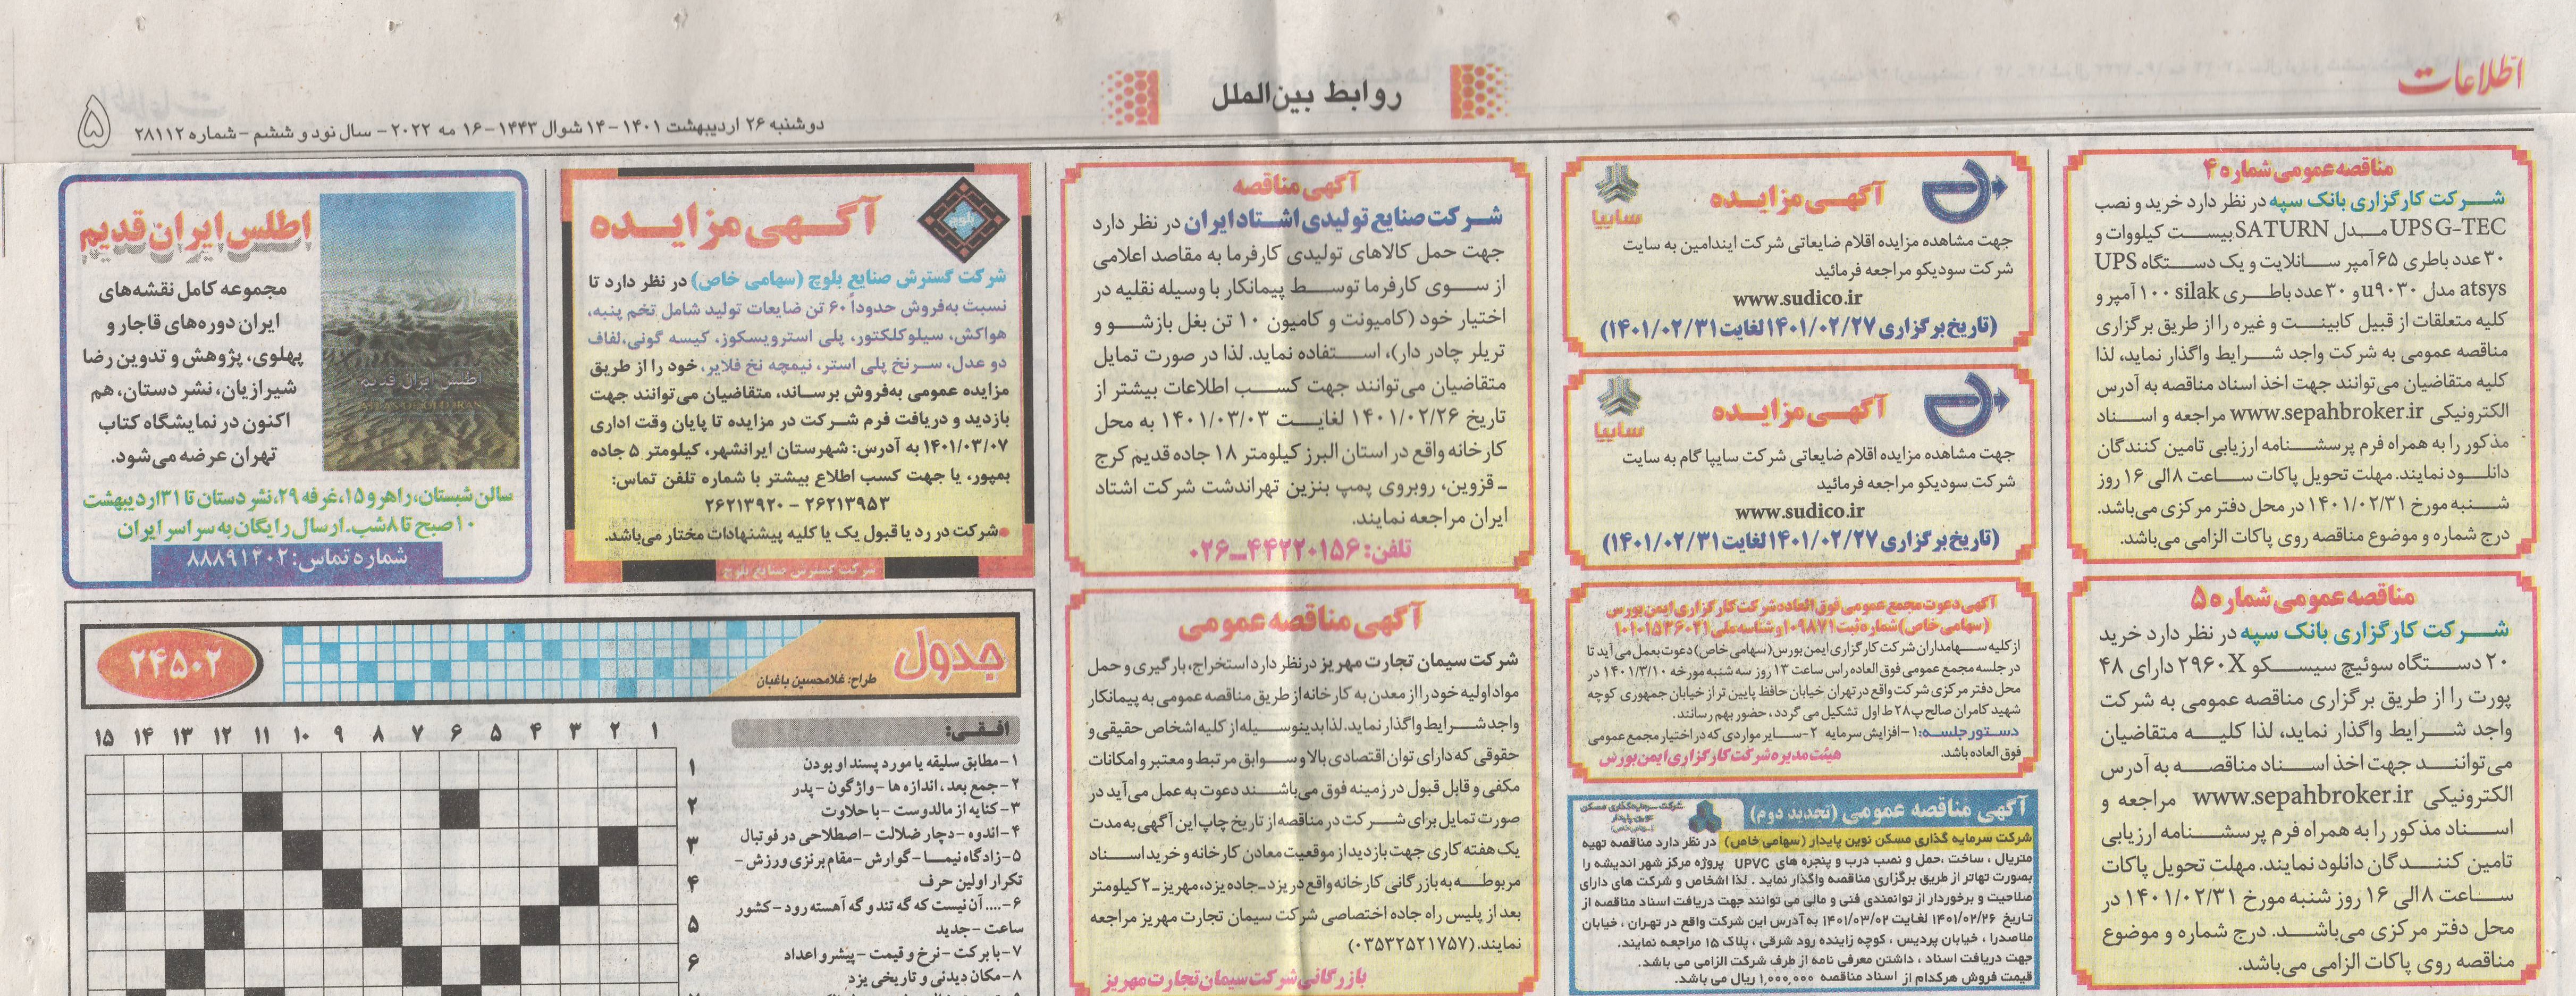 اطلاعات
روابط بین‌الملل
دوشنبه ۲۶ اردیبهشت ۱۴۰۱ - ۱۴ شوال ۱۴۴۳ - ۱۶ مه ۲۰۲۲ - سال نود و ششم - شماره ۲۸۱۱۲
۵
مناقصه عمومی شماره ۴
شرکت کارگزاری بانک سپه در نظر دارد خرید و نصب
UPS G-TEC مدل SATURN بیست کیلووات و
۳۰ عدد باطری ۶۵ آمپر سانلایت و یک دستگاه UPS
atsys مدل u۹۰۳۰ و ۳۰ عدد باطری silak ۱۰۰ آمپر و
کلیه متعلقات از قبیل کابینت و غیره را از طریق برگزاری
مناقصه عمومی به شرکت واجد شرایط واگذار نماید، لذا
کلیه متقاضیان می‌توانند جهت اخذ اسناد مناقصه به آدرس
الکترونیکی www.sepahbroker.ir مراجعه و اسناد
مذکور را به همراه فرم پرسشنامه ارزیابی تامین کنندگان
دانلود نمایند. مهلت تحویل پاکات ساعت ۸ الی ۱۶ روز
شنبه مورخ ۱۴۰۱/۰۲/۳۱ در محل دفتر مرکزی می‌باشد.
درج شماره و موضوع مناقصه روی پاکات الزامی می‌باشد.
مناقصه عمومی شماره ۵
شرکت کارگزاری بانک سپه در نظر دارد خرید
۲۰ دستگاه سوئیچ سیسکو ۲۹۶۰X دارای ۴۸
پورت را از طریق برگزاری مناقصه عمومی به شرکت
واجد شرایط واگذار نماید، لذا کلیه متقاضیان
می‌توانند جهت اخذ اسناد مناقصه به آدرس
الکترونیکی www.sepahbroker.ir مراجعه و
اسناد مذکور را به همراه فرم پرسشنامه ارزیابی
تامین کنندگان دانلود نمایند. مهلت تحویل پاکات
ساعت ۸ الی ۱۶ روز شنبه مورخ ۱۴۰۱/۰۲/۳۱ در
محل دفتر مرکزی می‌باشد. درج شماره و موضوع
مناقصه روی پاکات الزامی می‌باشد.
آگهی مزایده
سایپا
جهت مشاهده مزایده اقلام ضایعاتی شرکت ایندامین به سایت
شرکت سودیکو مراجعه فرمائید
www.sudico.ir
(تاریخ برگزاری ۱۴۰۱/۰۲/۲۷ لغایت ۱۴۰۱/۰۲/۳۱)
آگهی مزایده
سایپا
جهت مشاهده مزایده اقلام ضایعاتی شرکت سایپا گام به سایت
شرکت سودیکو مراجعه فرمائید
www.sudico.ir
(تاریخ برگزاری ۱۴۰۱/۰۲/۲۷ لغایت ۱۴۰۱/۰۲/۳۱)
آگهی دعوت مجمع عمومی فوق العاده شرکت کارگزاری ایمن بورس
(سهامی خاص) شماره ثبت ۱۰۹۸۷۱ و شناسه ملی ۱۰۱۰۱۵۳۶۰۲۱
از کلیه سهامداران شرکت کارگزاری ایمن بورس (سهامی خاص) دعوت بعمل می آید تا
در جلسه مجمع عمومی فوق العاده راس ساعت ۱۳ روز سه شنبه مورخه ۱۴۰۱/۳/۱۰ در
محل دفتر مرکزی شرکت واقع در تهران خیابان حافظ پایین تر از خیابان جمهوری کوچه
شهید کامران صالح پ۲۸ ط اول تشکیل می گردد، حضور بهم رسانند.
دستور جلسه: ۱- افزایش سرمایه ۲- سایر مواردی که در اختیار مجمع عمومی
فوق العاده باشد.
هیئت مدیره شرکت کارگزاری ایمن بورس
آگهی مناقصه عمومی (تجدید دوم)
شرکت سرمایه‌گذاری مسکن
نوین پایدار
(سهامی خاص)
شرکت سرمایه گذاری مسکن نوین پایدار (سهامی خاص) در نظر دارد مناقصه تهیه
متریال ، ساخت ،حمل و نصب درب و پنجره های UPVC پروژه مرکز شهر اندیشه را
بصورت تهاتر از طریق برگزاری مناقصه واگذار نماید . لذا اشخاص و شرکت های دارای
صلاحیت و برخوردار از توانمندی فنی و مالی می توانند جهت دریافت اسناد مناقصه از
تاریخ ۱۴۰۱/۰۲/۲۶ لغایت ۱۴۰۱/۰۳/۰۲ به آدرس این شرکت واقع در تهران ، خیابان
ملاصدرا ، خیابان پردیس ، کوچه زاینده رود شرقی ، پلاک ۱۵ مراجعه نمایند.
جهت دریافت اسناد ، داشتن معرفی نامه از طرف شرکت الزامی می باشد.
قیمت فروش هرکدام از اسناد مناقصه ۱,۰۰۰,۰۰۰ ریال می باشد.
آگهی مناقصه
شرکت صنایع تولیدی اشتاد ایران در نظر دارد
جهت حمل کالاهای تولیدی کارفرما به مقاصد اعلامی
از سوی کارفرما توسط پیمانکار با وسیله نقلیه در
اختیار خود (کامیونت و کامیون ۱۰ تن بغل بازشو و
تریلر چادر دار)، استفاده نماید. لذا در صورت تمایل
متقاضیان می‌توانند جهت کسب اطلاعات بیشتر از
تاریخ ۱۴۰۱/۰۲/۲۶ لغایت ۱۴۰۱/۰۳/۰۳ به محل
کارخانه واقع در استان البرز کیلومتر ۱۸ جاده قدیم کرج
ـ قزوین، روبروی پمپ بنزین تهراندشت شرکت اشتاد
ایران مراجعه نمایند.
تلفن: ۴۴۲۲۰۱۵۶ــ۰۲۶
آگهی مناقصه عمومی
شرکت سیمان تجارت مهریز در نظر دارد استخراج، بارگیری و حمل
مواد اولیه خود را از معدن به کارخانه از طریق مناقصه عمومی به پیمانکار
واجد شرایط واگذار نماید. لذا بدینوسیله از کلیه اشخاص حقیقی و
حقوقی که دارای توان اقتصادی بالا و سوابق مرتبط و معتبر و امکانات
مکفی و قابل قبول در زمینه فوق می‌باشند دعوت به عمل می‌آید در
صورت تمایل برای شرکت در مناقصه از تاریخ چاپ این آگهی به مدت
یک هفته کاری جهت بازدید از موقعیت معادن کارخانه و خرید اسناد
مربوطه به بازرگانی کارخانه واقع در یزد ـ جاده یزد، مهریز ـ ۲ کیلومتر
بعد از پلیس راه جاده اختصاصی شرکت سیمان تجارت مهریز مراجعه
نمایند. (۰۳۵۳۲۵۲۱۷۵۷)
بازرگانی شرکت سیمان تجارت مهریز
آگهی مزایده
بلوچ
شرکت گسترش صنایع بلوچ (سهامی خاص) در نظر دارد تا
نسبت به‌فروش حدوداً ۶۰ تن ضایعات تولید شامل تخم پنبه،
هواکش، سیلوکلکتور، پلی استرویسکوز، کیسه گونی، لفاف
دو عدل، سرنخ پلی استر، نیمچه نخ فلایر، خود را از طریق
مزایده عمومی به‌فروش برساند، متقاضیان می‌توانند جهت
بازدید و دریافت فرم شرکت در مزایده تا پایان وقت اداری
۱۴۰۱/۰۳/۰۷ به آدرس: شهرستان ایرانشهر، کیلومتر ۵ جاده
بمپور، یا جهت کسب اطلاع بیشتر با شماره تلفن تماس:
۲۶۲۱۳۹۵۳ - ۲۶۲۱۳۹۲۰
●شرکت در رد یا قبول یک یا کلیه پیشنهادات مختار می‌باشد.
شرکت گسترش صنایع بلوچ
اطلس ایران قدیم
مجموعه کامل نقشه‌های
ایران دوره‌های قاجار و
پهلوی، پژوهش و تدوین رضا
شیرازیان، نشر دستان، هم
اکنون در نمایشگاه کتاب
تهران عرضه می‌شود.
اطلس ایران قدیم
ATLAS OF OLD IRAN
سالن شبستان، راهرو ۱۵، غرفه ۲۹، نشر دستان تا ۳۱ اردیبهشت
۱۰ صبح تا ۸ شب. ارسال رایگان به سراسر ایران
شماره تماس: ۸۸۸۹۱۲۰۲
جدول
طراح: غلامحسین باغبان
۲۴۵۰۲
افقی:
۱- مطابق سلیقه یا مورد پسند او بودن
۲- جمع بعد، اندازه ها - واژگون - پدر
۳- کنایه از مالدوست - با حلاوت
۴- اندوه - دچار ضلالت - اصطلاحی در فوتبال
۵- زادگاه نیما - گوارش - مقام برنزی ورزش -
تکرار اولین حرف
۶- .... آن نیست که گه تند و گه آهسته رود - کشور
ساعت - جدید
۷- با برکت - نرخ و قیمت - پیشرو اعداد
۸- مکان دیدنی و تاریخی یزد
۱ ۲ ۳ ۴ ۵ ۶ ۷ ۸ ۹ ۱۰ ۱۱ ۱۲ ۱۳ ۱۴ ۱۵
۱
۲
۳
۴
۵
۶